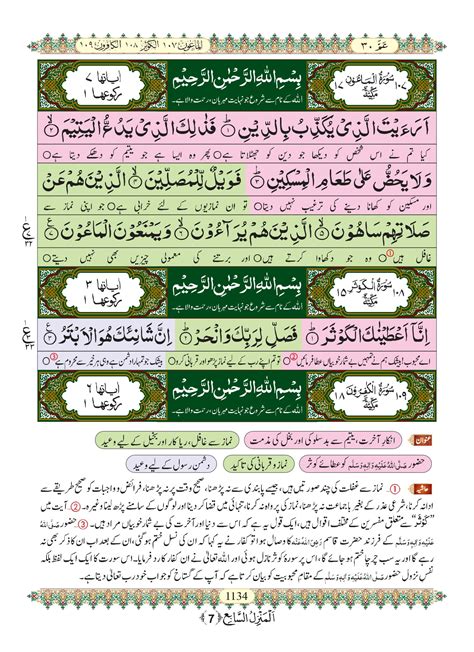 عَمَّ ٣٠
الماعون ١٠٧ الکوثر ١٠٨ الکافرون ١٠٩
١٠٧ سُوْرَةُ الْمَاعُوْنِ مَكِّيَّةٌ ١٧
بِسْمِ اللّٰهِ الرَّحْمٰنِ الرَّحِیْمِ
اللہ کے نام سے شروع جو نہایت مہربان، رحمت والا ہے۔
اٰیاتہا ٧ رکوعہا ١
اَرَءَیْتَ الَّذِیْ یُكَذِّبُ بِالدِّیْنِ ۝١ فَذٰلِكَ الَّذِیْ یَدُعُّ الْیَتِیْمَ ۝٢
کیا تم نے اس شخص کو دیکھا جو دین کو جھٹلاتا ہے ○ پھر وہ ایسا ہے جو یتیم کو دھکے دیتا ہے ○
وَ لَا یَحُضُّ عَلٰى طَعَامِ الْمِسْكِیْنِ ۝٣ فَوَیْلٌ لِّلْمُصَلِّیْنَ ۝٤ الَّذِیْنَ هُمْ عَنْ
اور مسکین کو کھانا دینے کی ترغیب نہیں دیتا ○ تو ان نمازیوں کے لئے خرابی ہے ○ جو اپنی نماز سے
صَلَاتِهِمْ سَاهُوْنَ ۝٥ الَّذِیْنَ هُمْ یُرَآءُوْنَ ۝٦ وَ یَمْنَعُوْنَ الْمَاعُوْنَ ۝٧
غافل ہیں ①○ وہ جو دکھاوا کرتے ہیں ○ اور برتنے کی معمولی چیزیں بھی نہیں دیتے ○
١٠٨ سُوْرَةُ الْكَوْثَرِ مَكِّيَّةٌ ١٥
بِسْمِ اللّٰهِ الرَّحْمٰنِ الرَّحِیْمِ
اللہ کے نام سے شروع جو نہایت مہربان، رحمت والا ہے۔
اٰیاتہا ٣ رکوعہا ١
اِنَّاۤ اَعْطَیْنٰكَ الْكَوْثَرَ ۝١ فَصَلِّ لِرَبِّكَ وَ انْحَرْ ۝٢ اِنَّ شَانِئَكَ هُوَ الْاَبْتَرُ ۝٣
اے محبوب! بیشک ہم نے تمہیں بے شمار خوبیاں عطا فرمائیں ②○ تو تم اپنے رب کے لیے نماز پڑھو اور قربانی کرو ○ بیشک جو تمہارا دشمن ہے وہی ہر خیر سے محروم ہے ③○
١٠٩ سُوْرَةُ الْكٰفِرُوْنَ مَكِّيَّةٌ ١٨
بِسْمِ اللّٰهِ الرَّحْمٰنِ الرَّحِیْمِ
اللہ کے نام سے شروع جو نہایت مہربان، رحمت والا ہے۔
اٰیاتہا ٦ رکوعہا ١
عنوان انکارِ آخرت، یتیم سے بدسلوکی اور بخل کی مذمت نماز سے غافل، ریاکار اور بخیل کے لیے وعید
حضور صَلَّی اللّٰهُ عَلَیْهِ وَاٰلِهٖ وَسَلَّم کو عطائے کوثر نماز و قربانی کی تاکید دشمنِ رسول کے لیے وعید
حاشیہ ①۔ نماز سے غفلت کی چند صورتیں ہیں، جیسے پابندی سے نہ پڑھنا، صحیح وقت پر نہ پڑھنا، فرائض و واجبات کو صحیح طریقے سے
ادا نہ کرنا، شرعی عذر کے بغیر باجماعت نہ پڑھنا، نماز کی پرواہ نہ کرنا، تنہائی میں قضا کر دینا اور لوگوں کے سامنے پڑھ لینا وغیرہ۔ ②۔ آیت میں
"کوثر" سے متعلق مفسرین کے مختلف اقوال ہیں، ایک قول یہ ہے کہ اس سے دنیا اور آخرت کی بے شمار خوبیاں مراد ہیں۔ ③۔ حضور صَلَّی اللّٰهُ
عَلَیْهِ وَاٰلِهٖ وَسَلَّم کے فرزند حضرت قاسم رَضِیَ اللّٰهُ عَنْهُ کا وصال ہوا تو کفار نے یہ کہا کہ ان کی نسل ختم ہو گئی، ان کے بعد اب ان کا ذکر بھی نہ
رہے گا اور یہ سب چرچا ختم ہو جائے گا، اس پر سورۂ کوثر نازل ہوئی اور اللہ تعالیٰ نے ان کفار کا رد فرمایا۔ اس سورت کا ایک ایک لفظ بلکہ
نفسِ نزول حضور صَلَّی اللّٰهُ عَلَیْهِ وَاٰلِهٖ وَسَلَّم کے مقامِ محبوبیت کو بیان کرتا ہے کہ آپ کے گستاخ کو جواب خود رب تعالیٰ دیتا ہے۔
1134
اَلْمَنْزِلُ السَّابِع ﴿7﴾